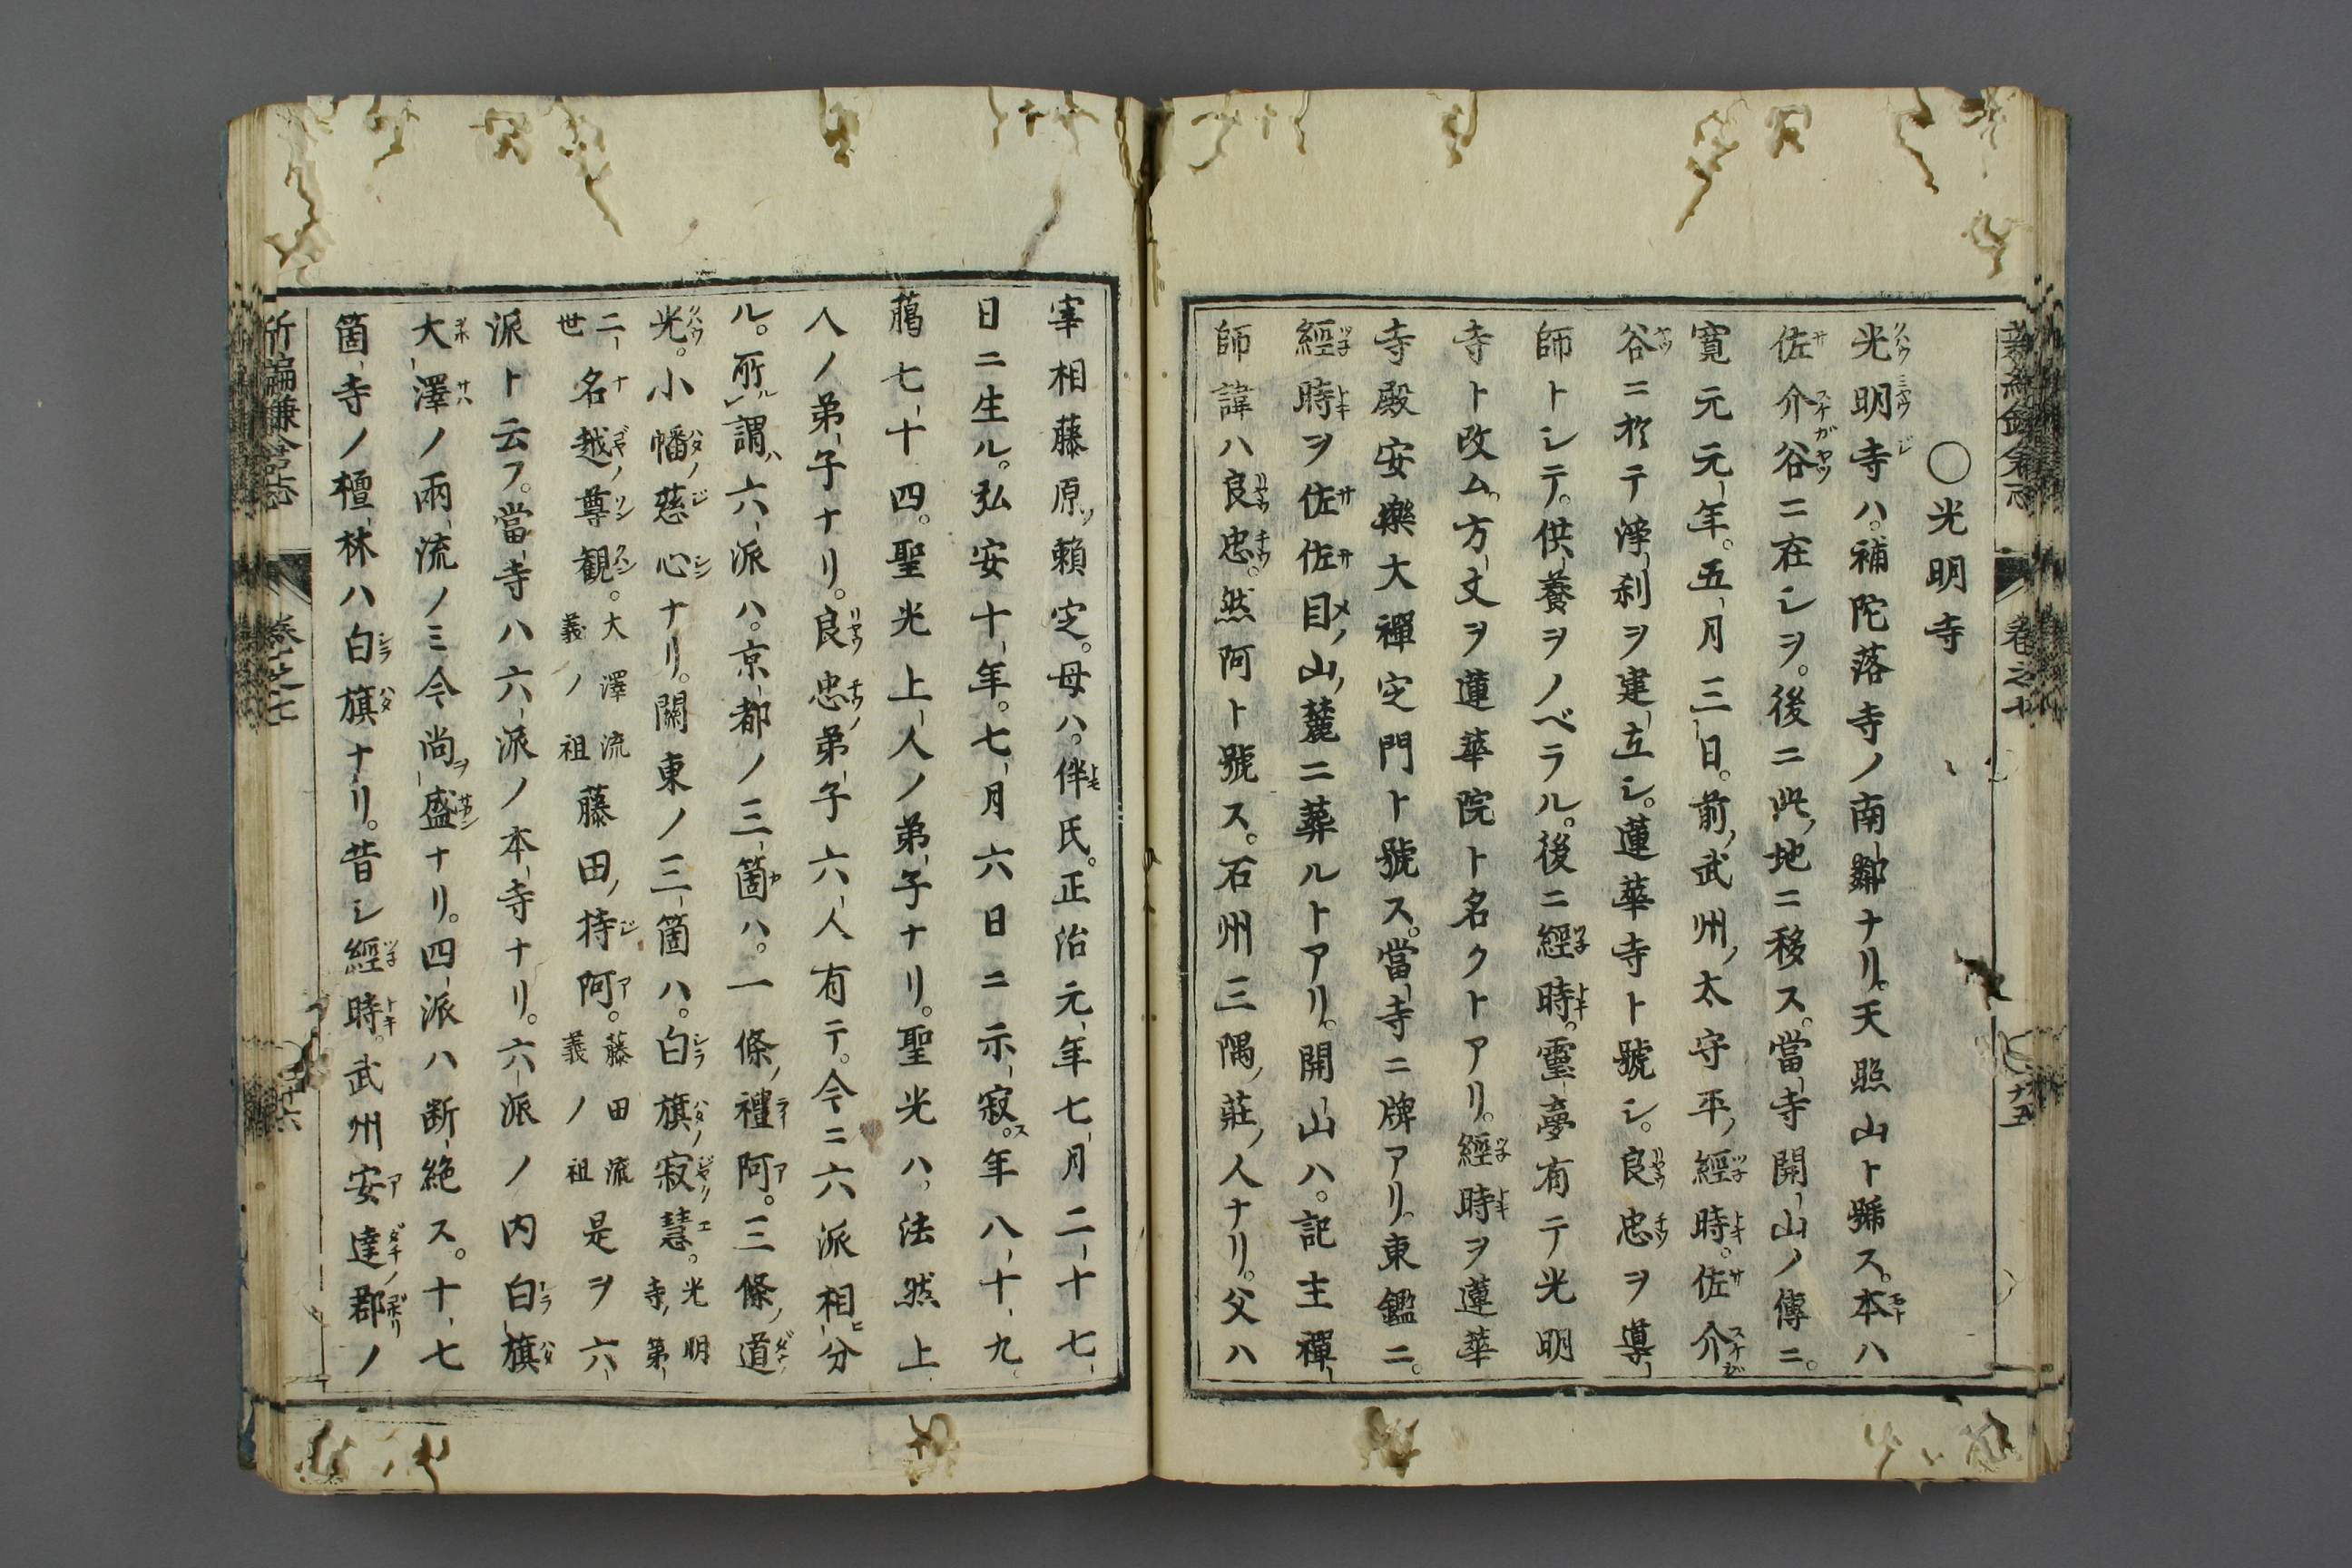 ○光明寺
光明寺ハ。補陀落寺ノ南鄰ナリ。天照山ト號ス。本ハ
佐介谷ニ在シヲ。後ニ此ノ地ニ移ス。當寺開山ノ傳ニ。
寛元元年。五月三日。前ノ武州ノ太守平ノ經時。佐介
谷ニ於テ淨刹ヲ建立シ。蓮華寺ト號シ。良忠ヲ導
師トシテ。供養ヲノベラル。後ニ經時。靈夢有テ光明
寺ト改ム。方丈ヲ蓮華院ト名クトアリ。經時ヲ蓮華
寺殿安樂大禪定門ト號ス。當寺ニ牌アリ。東鑑ニ。
經時ヲ佐佐目ノ山ノ麓ニ葬ルトアリ。開山ハ。記主禪
師諱ハ良忠。然阿ト號ス。石州三隅ノ莊ノ人ナリ。父ハ
宰相藤原ノ賴定。母ハ。伴氏。正治元年七月二十七
日ニ生ル。弘安十年。七月六日ニ示寂ス。年八十九
﨟七十四。聖光上人ノ弟子ナリ。聖光ハ。法然上
人ノ弟子ナリ。良忠ノ弟子六人有テ。今ニ六派相ヒ分
ル。所謂ル六派ハ。京都ノ三箇ハ。一條ノ禮阿。三條ノ道
光。小幡ノ慈心ナリ。關東ノ三箇ハ。白旗ノ寂慧。光明寺ノ第
二世 名越ノ尊観。大澤流義ノ祖 藤田ノ持阿。藤田流義ノ祖 是ヲ六
派ト云フ。當寺ハ六派ノ本寺ナリ。六派ノ内白旗
大澤ノ兩流ノミ今尚ヲ盛ナリ。四派ハ断絶ス。十七
箇寺ノ檀林ハ白旗ナリ。昔シ經時。武州安達郡ノ
新編鎌倉志 卷之七